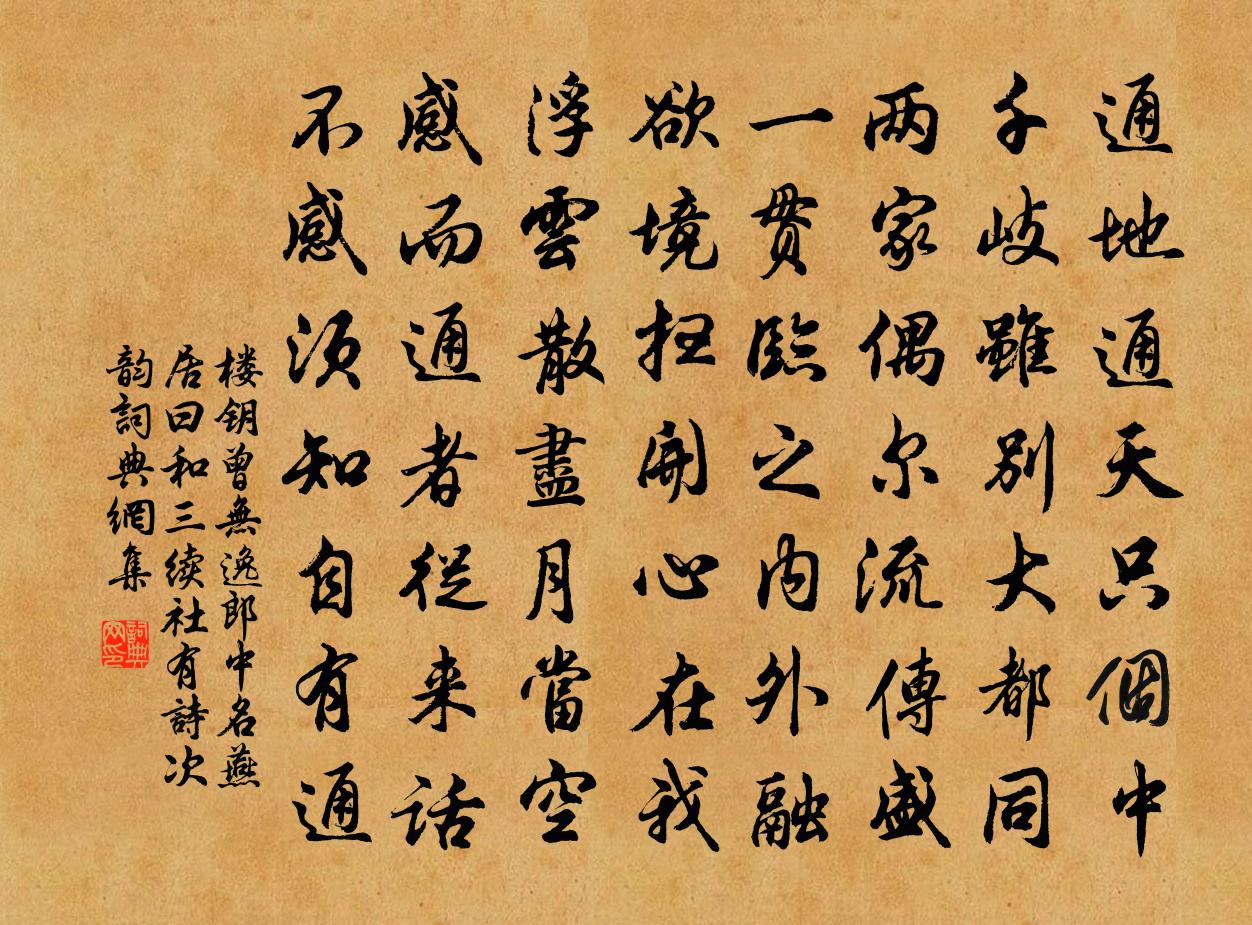 通地通天只個中
千岐雖別大都同
两家偶尔流傳盛
一貫臨之内外融
欲境掃開心在我
浮雲散盡月當空
感而通者從来話
不感須知自有通
楼钥曾無逸郎中名燕
居曰和三续社有詩次
韵詞典網集
詞典
网印